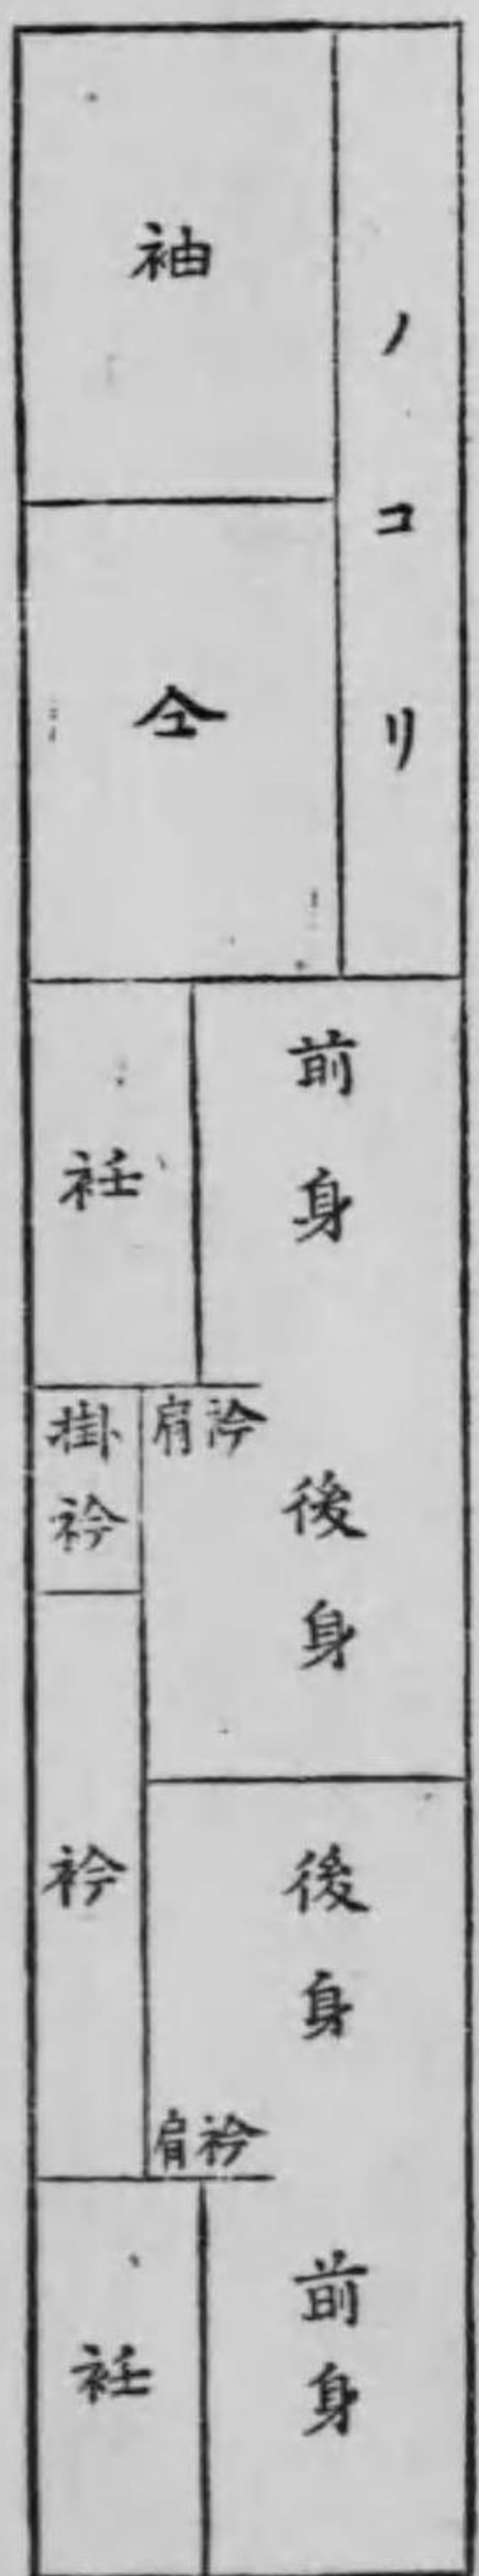 袖
ノコリ
仝
前身
衽
掛衿
肩衿
後身
衿
後身
肩衿
前身
衽